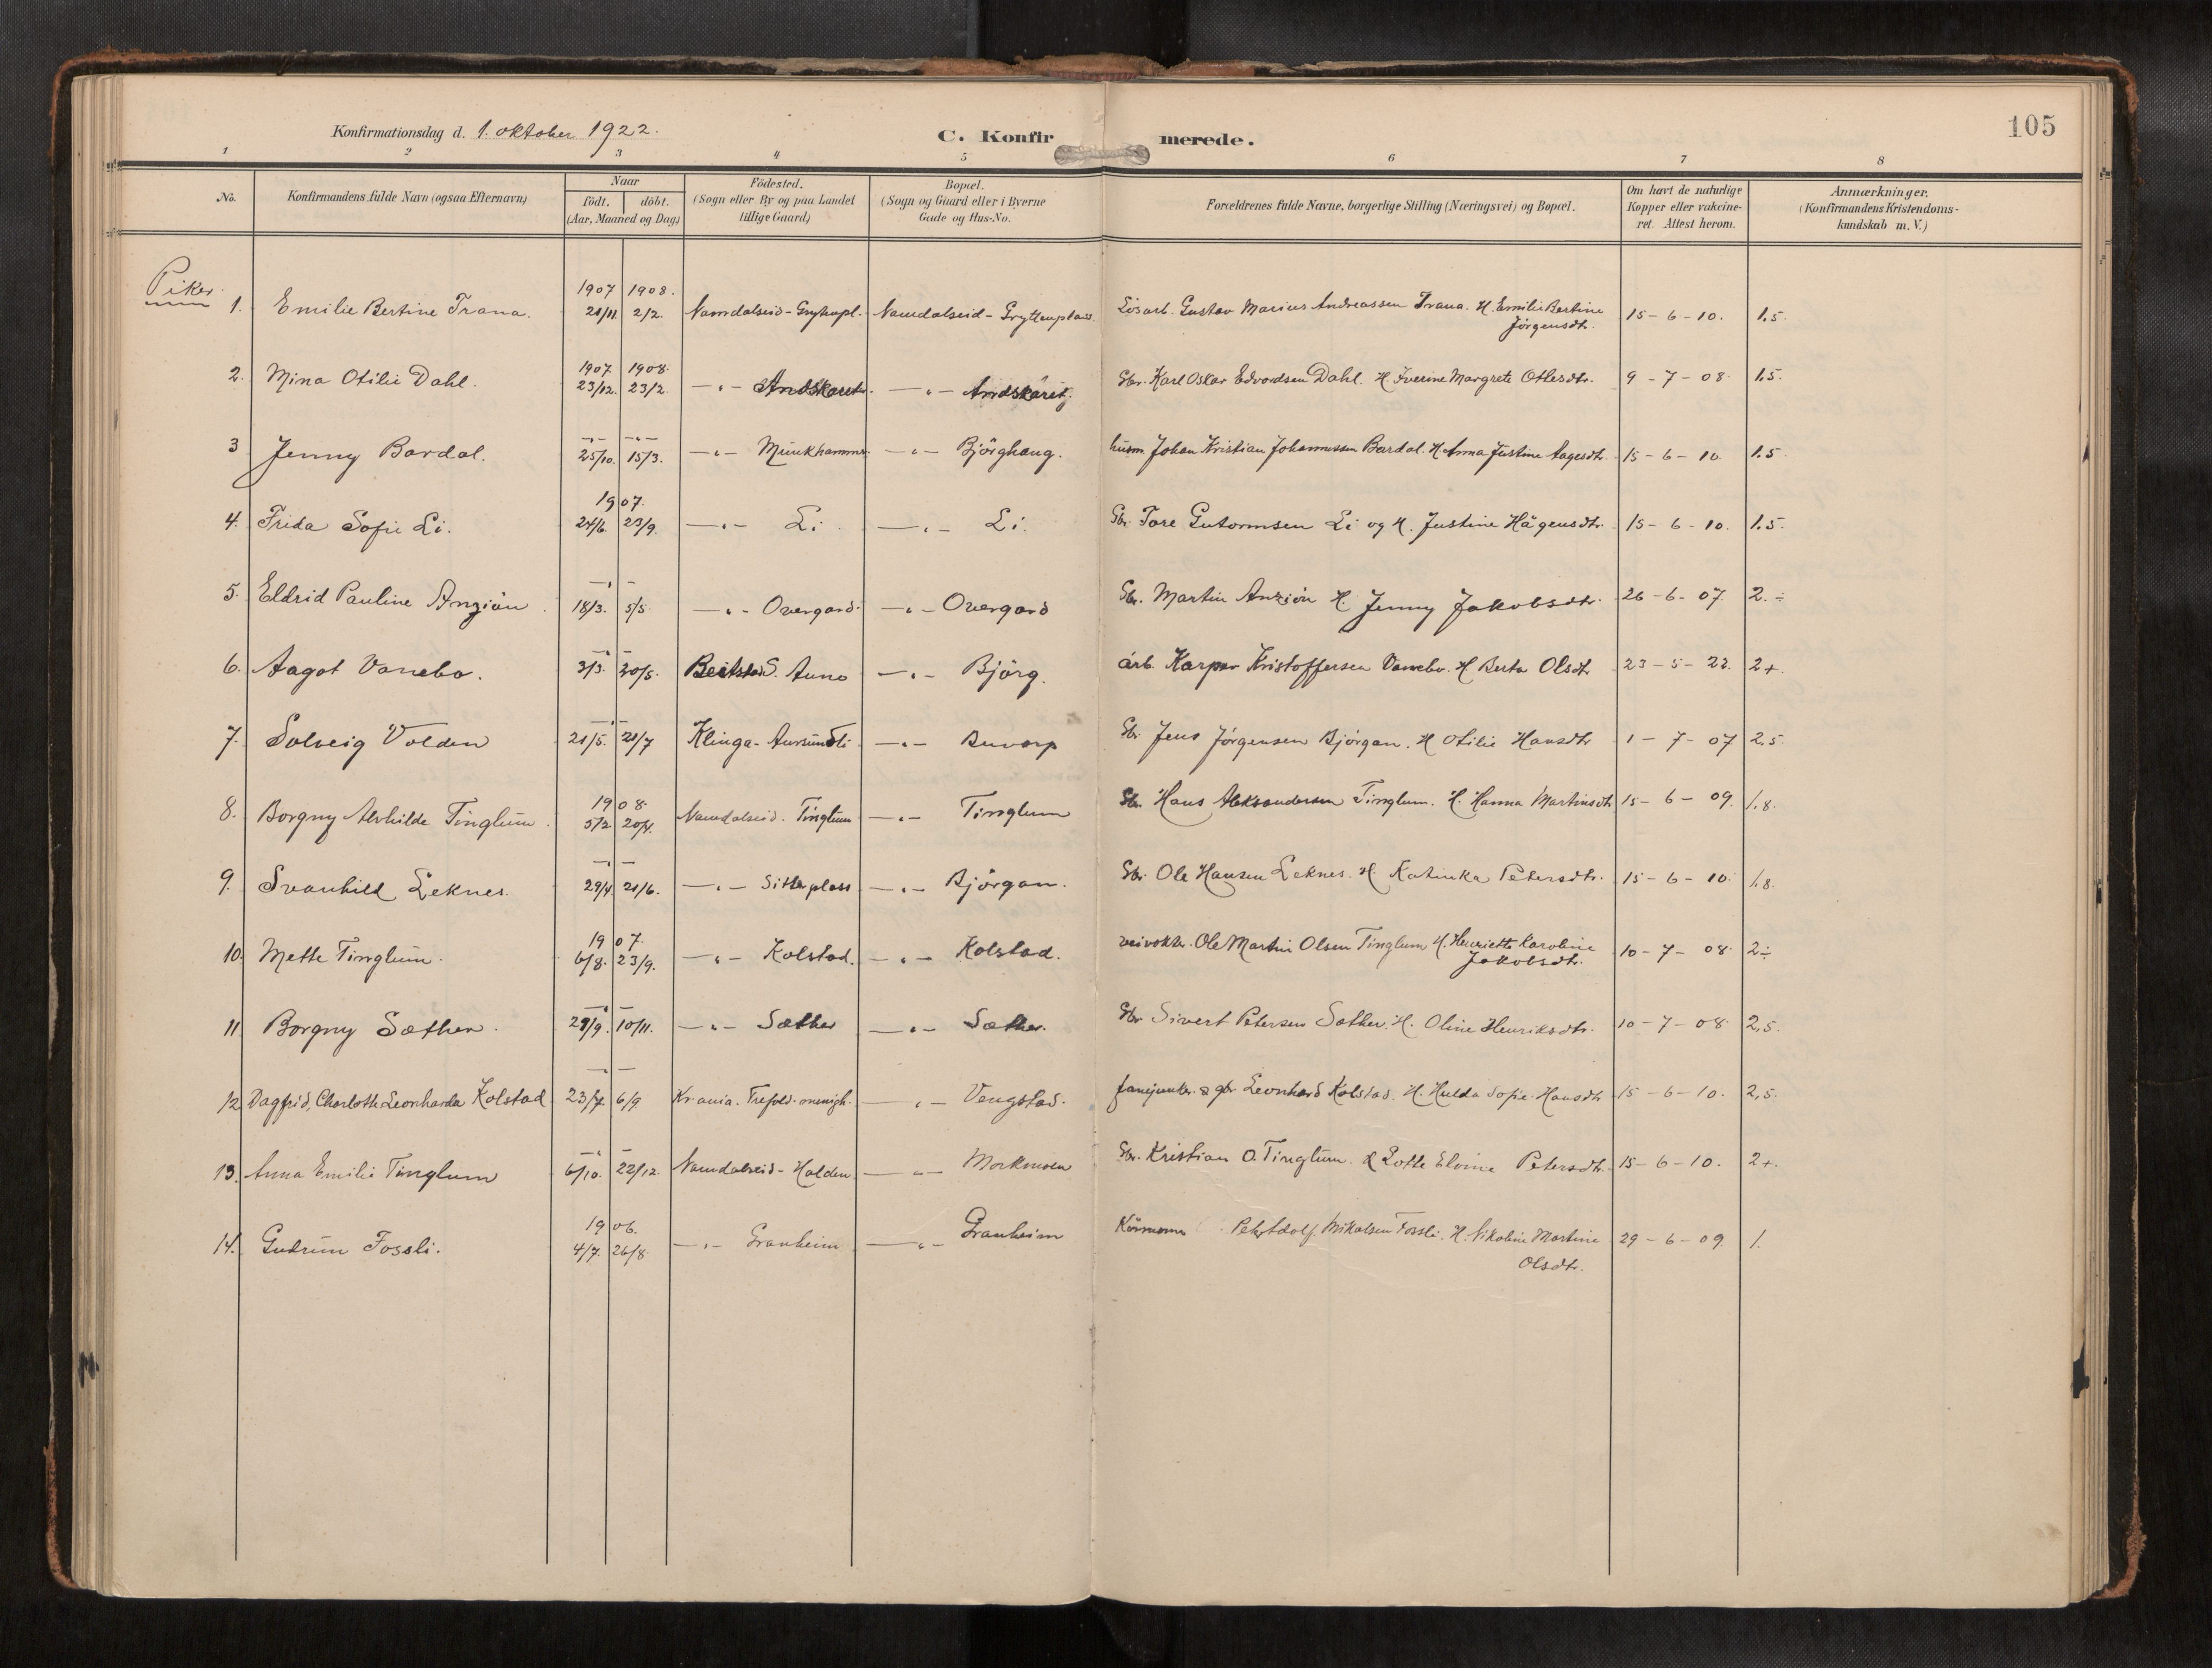 105
Konfirmationsdag d. 1. oktober 1922.
C. Konfirmerede.
1 2 3 4 5 6 7 8
No.
Konfirmandens fulde Navn (ogsaa Efternavn)
Naar
födt. döbt.
(Aar, Maaned og Dag)
Födested.
(Sogn eller By og paa Landet
tillige Gaard)
Bopæl.
(Sogn og Gaard eller i Byerne
Gade og Hus-No.
Forældrenes fulde Navne, borgerlige Stilling (Næringsvei) og Bopæl.
Om havt de naturlige
Kopper eller vakcine-
ret. Attest herom.
Anmærkninger.
(Konfirmandens Kristendoms-
kundskab m. V.)
Piker
1907 1908.
1. Emilie Bertine Trana. 21/11. 2/2. Namdalseid - Grytenpl. Namdalseid - Gryttenplass Lösarb. Gustav Marius Andreassen Trana. H. Emilie Bertine 15 - 6 - 10. 1.5.
Jörgensdtr.
1907 1908.
2. Mina Otilie Dahl. 23/12. 23/2. —„— Andskaret. —„— Andskaret. Gbr. Karl Oskar Edvardsen Dahl. H. Iverine Margrete Ottesdtr. 9 - 7 - 08. 1.5.
—„— —„—
3 Jenny Bardal. 25/10. 15/3. —„— Munkhammer. —„— Björghaug. husm. Johan Kristian Johannessen Bardal. H. Anna Justine Aagesdtr. 15 - 6 - 10 1.5
1907.
4. Frida Sofie Li. 24/6. 23/9. —„— Li. —„— Li. Gbr. Tore Gutormsen Li og H. Justine Hågensdtr. 15 - 6 - 10. 1.5.
—„—
5. Eldrid Pauline Anziön. 18/3. 5/5. —„— Overgard. —„— Overgard Gbr. Martin Anziön H. Jenny Jakobsdtr. 26 - 6 - 07. 2. ÷
—„—
6. Aagot Vanebo. 3/3. 20/5. Beitstad. Auno —„— Björg. arb. Karper Kristoffersen Vanebo. H. Berta Olsdtr 23 - 5 - 22. 2+.
—„—
7. Solveig Volden 21/5. 21/7 Klinga - Aursundli —„— Buvarp Gbr. Jens Jörgensen Björgan. H. Otilie Hansdtr 1 - 7 - 07 2.5.
1908.
8. Borgny Alvhilde Tinglum. 5/2. 20/4. Namdalseid. Tinglum —„— Tinglum Gbr. Hans Aleksandersen Tinglum. H. Hanna Martinsdtr. 15 - 6 - 09. 1.8.
—„—
9. Svanhild Leknes. 29/4. 21/6. —„— Sitterplass —„— Björgan. Gbr. Ole Hansen Leknes. H. Katinka Petersdtr. 15 - 6 - 10. 1.8.
1907.
10. Mette Tinglum. 6/8. 23/9. —„— Kolstad. —„— Kolstad. veivokter. Ole Martin Olsen Tinglum H. Henriette Karoline 10 - 7 - 08. 2÷
Jakobsdtr.
—„—
11. Borgny Sæther. 29/9. 10/11. —„— Sæther —„— Sæther. Gbr Sivert Petersen Sæther. H. Oline Henriksdtr. 10 - 7 - 08. 2,5.
—„—
12. Dagfrid, Charlotte Leonharda Kolstad 23/7. 6/9. Kr.ania. Trefold.omenigh. —„— Vengstad. fanejunker. & gbr. Leonhard Kolstad. H. Hulda Sofie Hansdtr 15 - 6 - 10. 2,5.
—„—
13. Anna Emilie Tinglum 6/10. 22/12. Namdalseid - Halden. —„— Morkmoen Gbr. Kristian O. Tinglum. & Lotte Elvine Petersdtr. 15 - 6 - 10. 2+.
1906.
14. Gudrun Fossli. 4/7. 26/8. —„— Granheim —„— Granheim Peter Adolf Mikalsen Fossli. H. Nikoline Martine 29 - 6 - 09. 1.
Olsdtr.